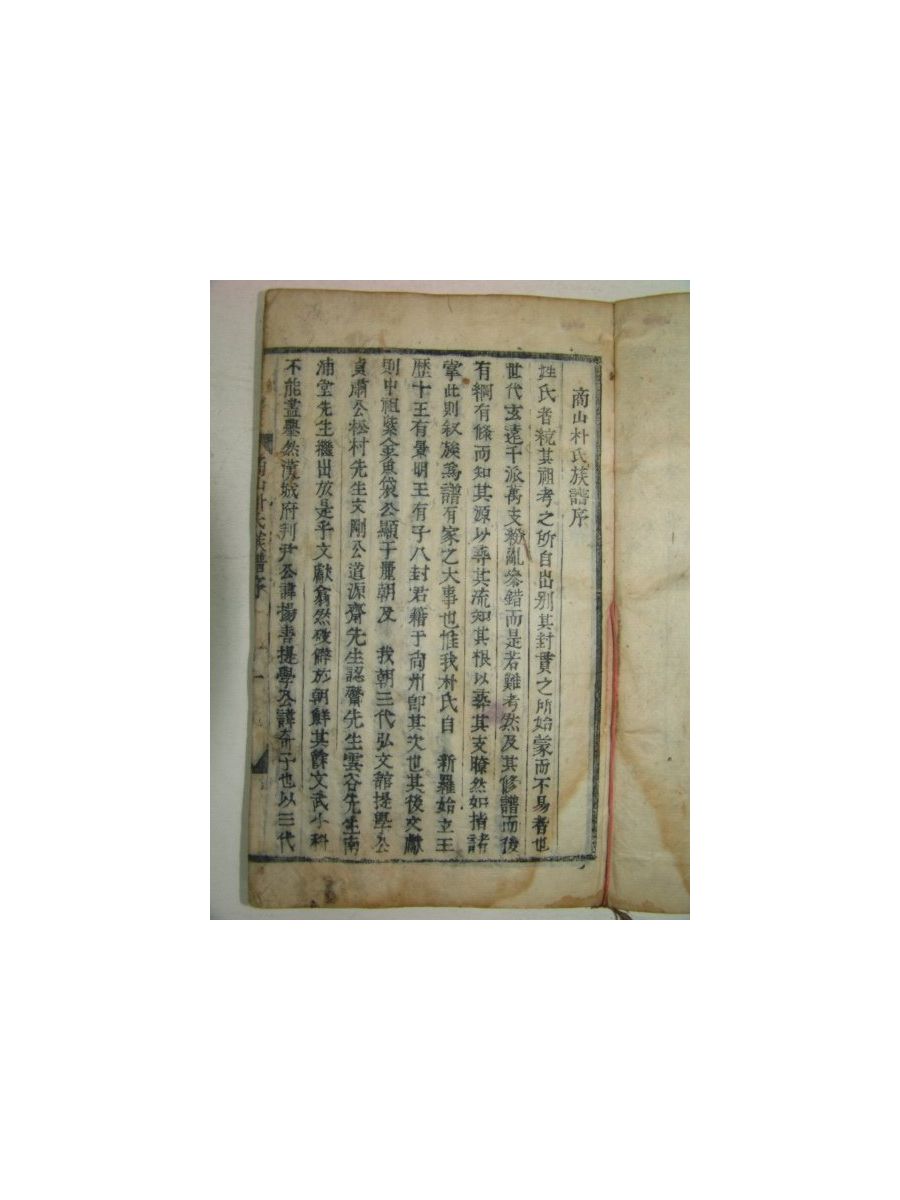 商山朴氏族譜序
姓氏者統其祖考之所自出別其封貫之所始蒙而不易者也
世代玄遠千派萬支紛亂參錯而是若難考然及其修譜而後
有綱有條而知其源以尋其流知其根以尋其支瞭然如指諸
掌此則叙族爲譜有家之大事也惟我朴氏自 新羅始立王
歷十王有景明王有子八封君籍于尙州卽其次也其後文獻
則中祖紫金魚袋公顯于麗朝及 我朝三代弘文館提學公
貞肅公松村先生文剛公道源齋先生認齋先生雲谷先生南
浦堂先生繼出於是乎文獻翕然 於朝鮮其餘文武小科
不能盡擧然漢城府判尹公諱揚善提學公諱 子也以三代
商山朴氏族譜序 一